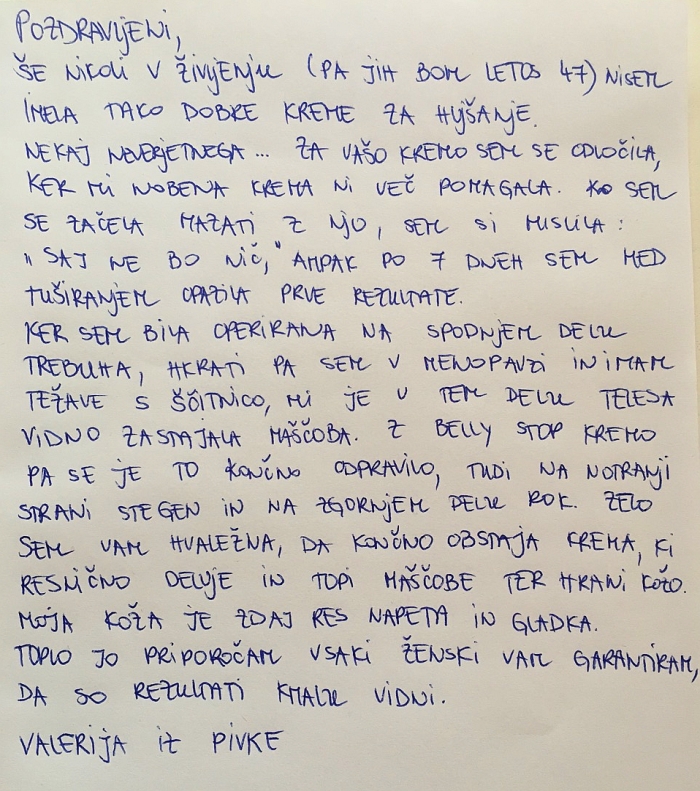 POZDRAVLJENI,
ŠE NIKOLI V ŽIVLJENJU (PA JIH BOM LETOS 47) NISEM
IMELA TAKO DOBRE KREME ZA HUJŠANJE.
NEKAJ NEVERJETNEGA ... ZA VAŠO KREMO SEM SE ODLOČILA,
KER MI NOBENA KREMA NI VEČ POMAGALA. KO SEM
SE ZAČELA MAZATI Z NJO, SEM SI MISLILA:
"SAJ NE BO NIČ," AMPAK PO 7 DNEH SEM MED
TUŠIRANJEM OPAZILA PRVE REZULTATE.
KER SEM BILA OPERIRANA NA SPODNJEM DELU
TREBUHA, HKRATI PA SEM V MENOPAVZI IN IMAM
TEŽAVE S ŠČITNICO, MI JE V TEM DELU TELESA
VIDNO ZASTAJALA MAŠČOBA. Z BELLY STOP KREMO
PA SE JE TO KONČNO ODPRAVILO, TUDI NA NOTRANJI
STRANI STEGEN IN NA ZGORNJEM DELU ROK. ZELO
SEM VAM HVALEŽNA, DA KONČNO OBSTAJA KREMA, KI
RESNIČNO DELUJE IN TOPI MAŠČOBE TER HRANI KOŽO.
MOJA KOŽA JE ZDAJ RES NAPETA IN GLADKA.
TOPLO JO PRIPOROČAM VSAKI ŽENSKI VAM GARANTIRAM,
DA SO REZULTATI KMALU VIDNI.
VALERIJA IZ PIVKE